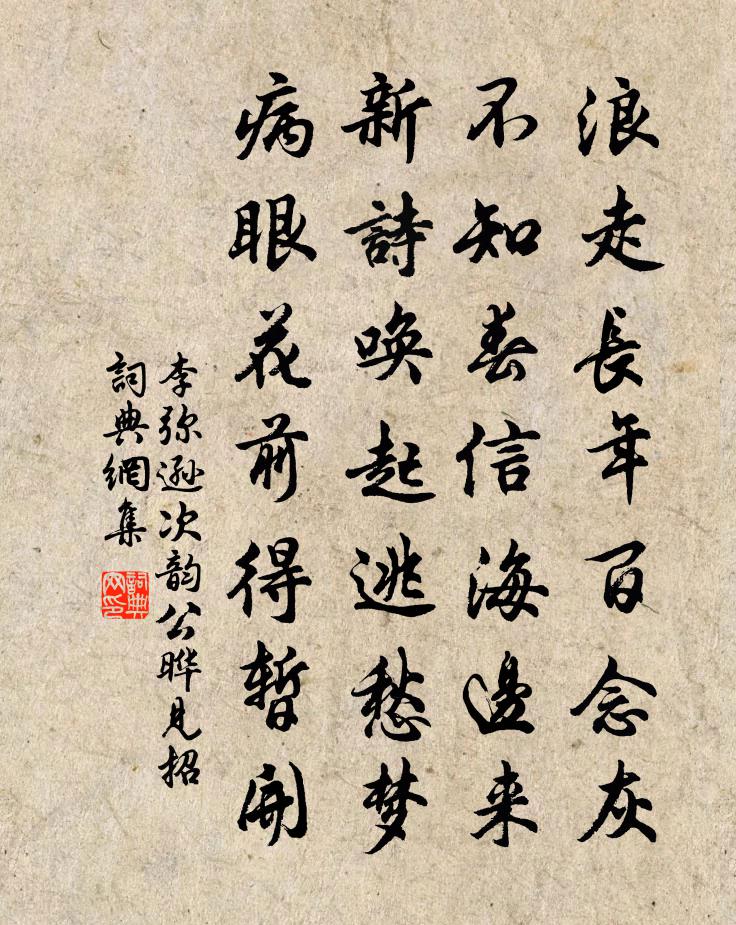 浪走長年百念灰
不知春信海邊来
新詩喚起逃愁梦
病眼花前得暫開
李弥遜次韵公晔見招
詞典網集
詞典
网印